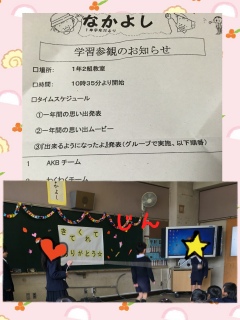 なかよし
1年学年だより
学習参観のお知らせ
□場所: 1年2組教室
□時間: 10時35分より開始
□タイムスケジュール
①一年間の思い出発表
②一年間の思い出ムービー
③『出来るようになったよ』発表(グループで実施、以下順番)
1 AKBチーム
わくわくチーム
きてくれて
ありがとう☆